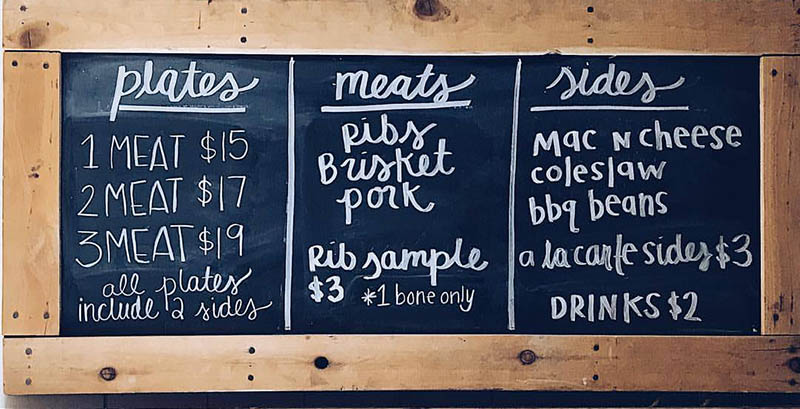 plates
1 MEAT $15
2 MEAT $17
3 MEAT $19
all plates
include 2 sides
meats
Ribs
Brisket
pork
Rib sample
$3 *1 bone only
sides
Mac N cheese
coleslaw
bbq beans
a la carte sides $3
DRINKS $2